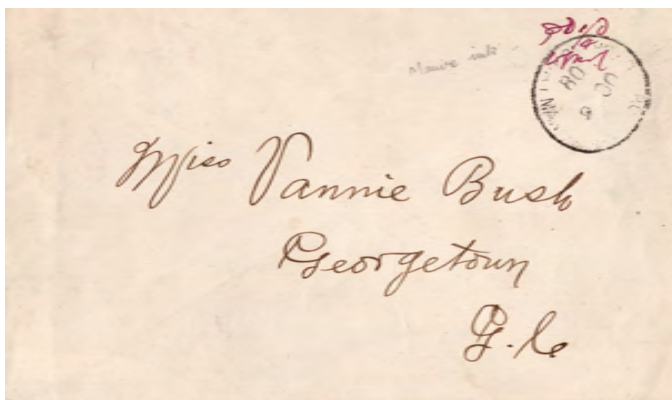 Mauve ink
Miss Vannie Bush
Georgetown
G.C